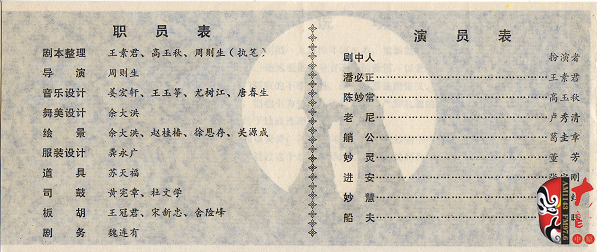 职员表
剧本整理 王素君、高玉秋、周则生（执笔）
导演 周则生
音乐设计 姜宏轩、王玉等、尤树江、唐春生
舞美设计 余大洪
绘景 余大洪、赵桂椿、徐思存、关源成
服装设计 龚永广
道具 苏天福
司鼓 黄宪章、杜文学
板胡 王冠君、宋新忠、含险峰
剧务 魏连有
演员表
剧中人 扮演者
潘必正 王素君
陈妙常 高玉秋
老尼 卢秀清
艄公 葛圭章
妙灵 董芳
进安
妙慧
船夫